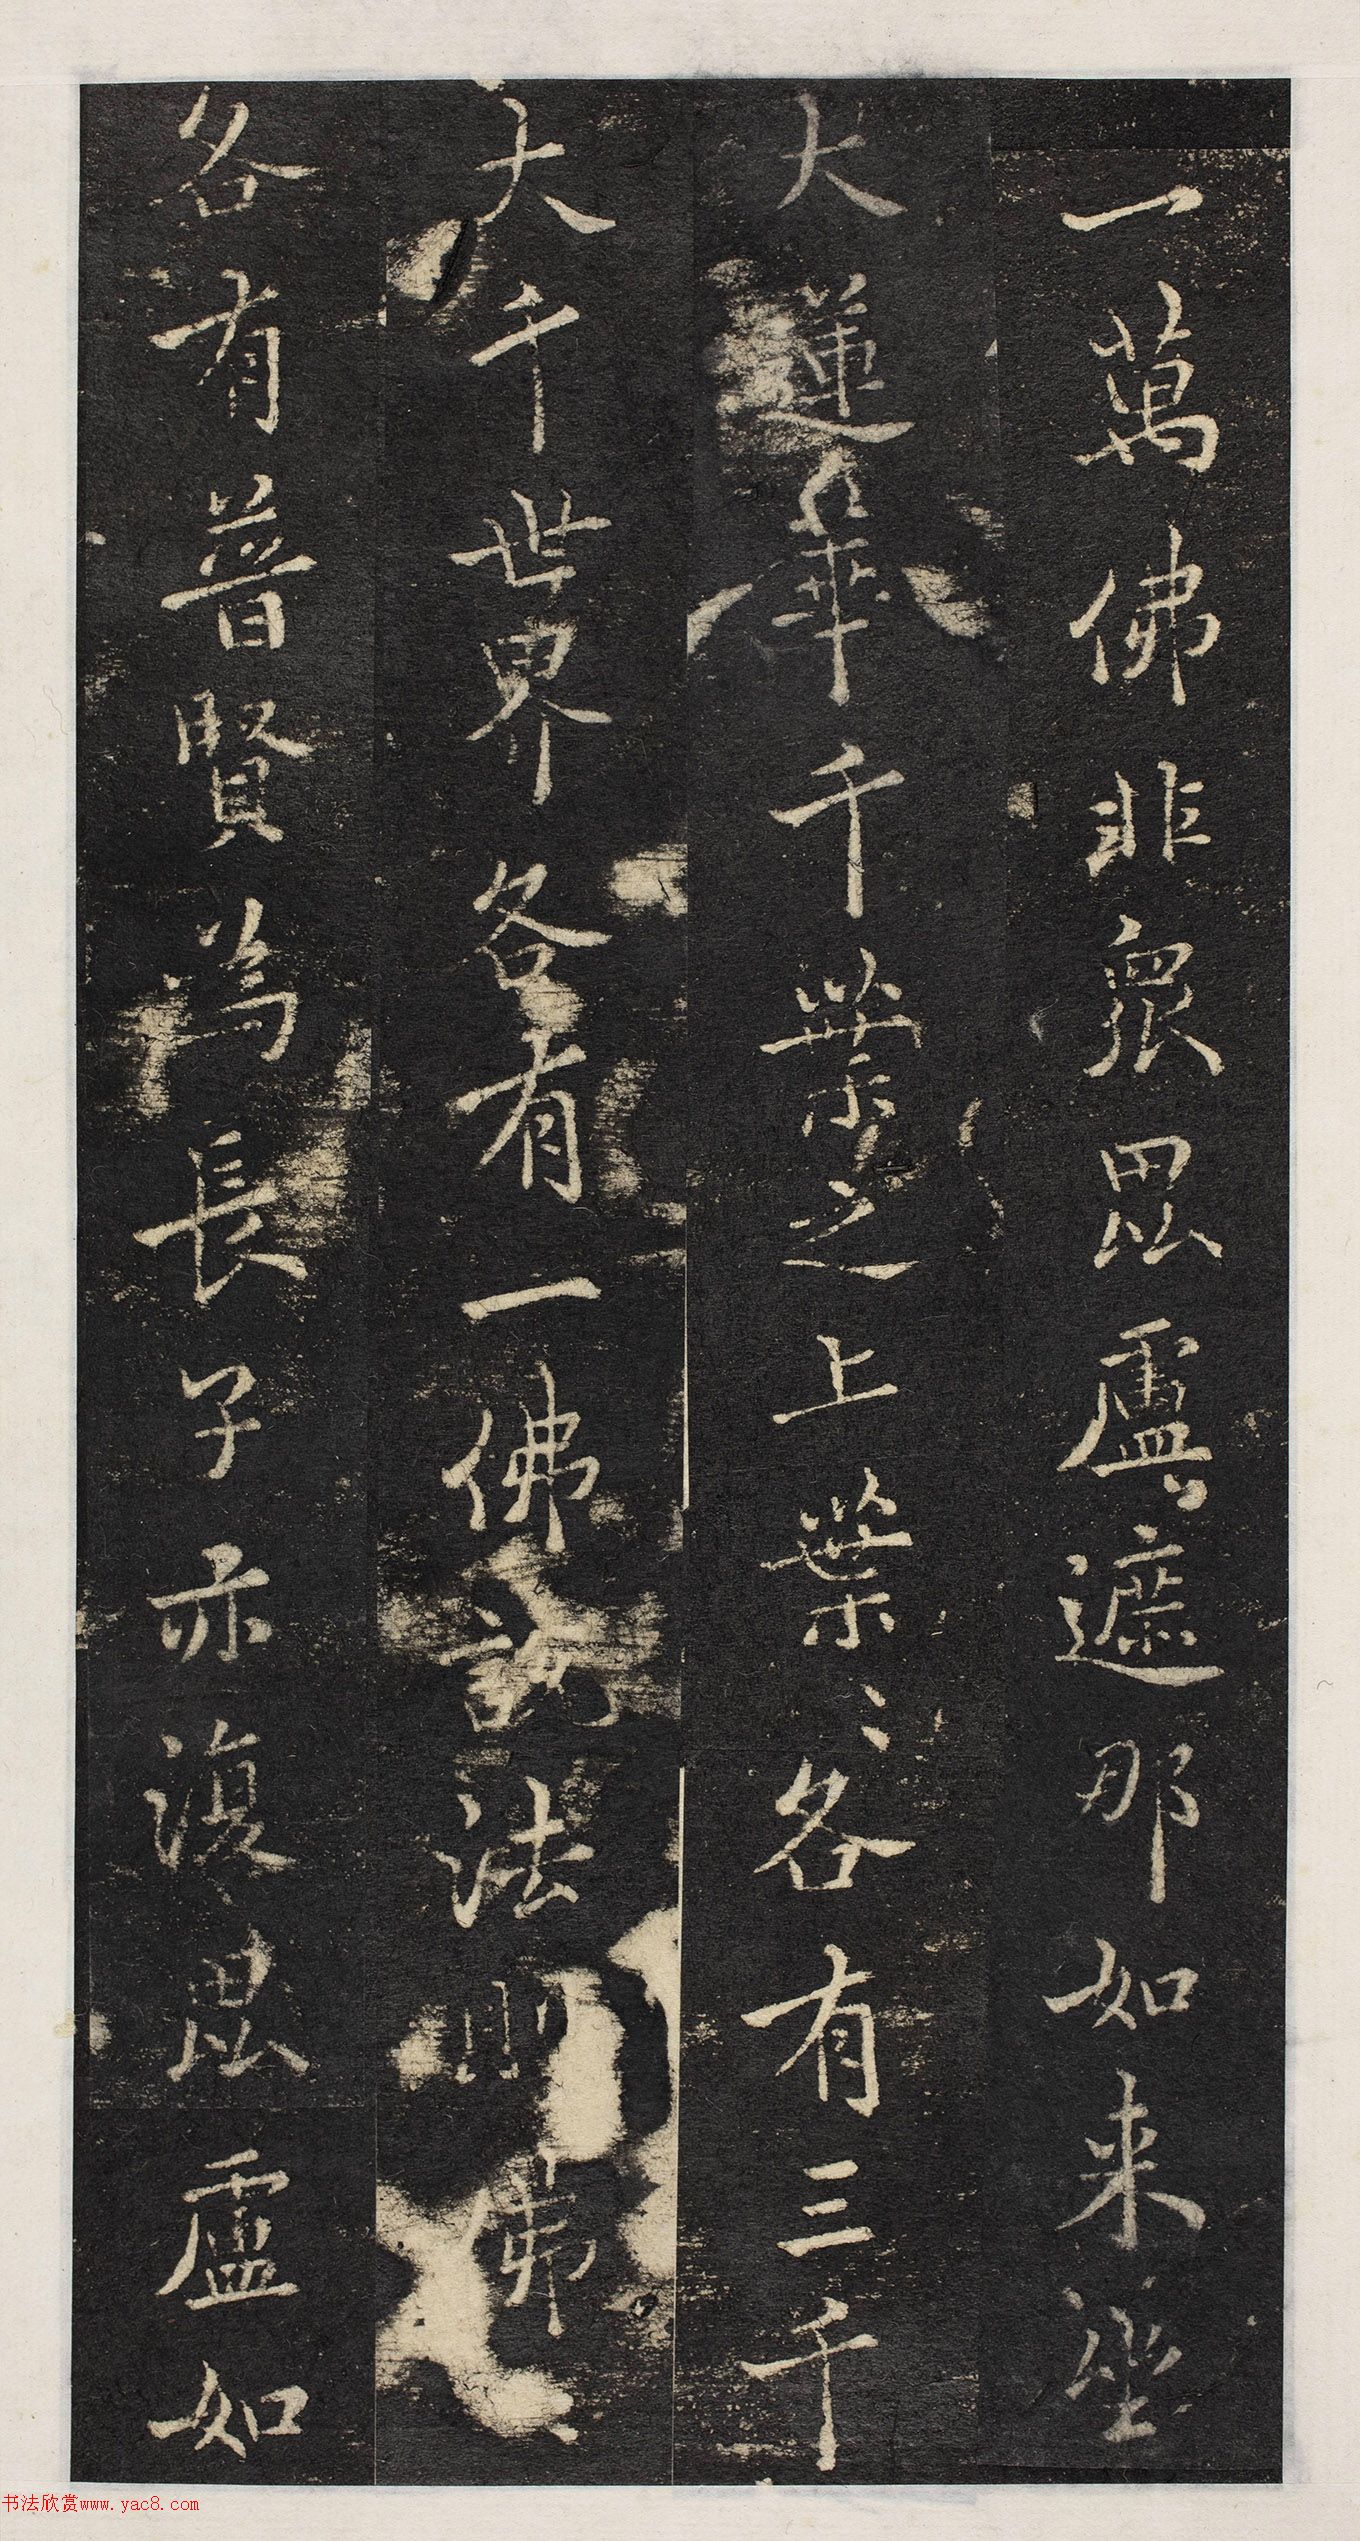 一萬佛非衆毘盧遮那如来坐
大蓮華千葉之上葉〻各有三千
大千世界各有一佛說法則佛
各有普賢為長子亦復毘盧如
书法欣赏www.yac8.com